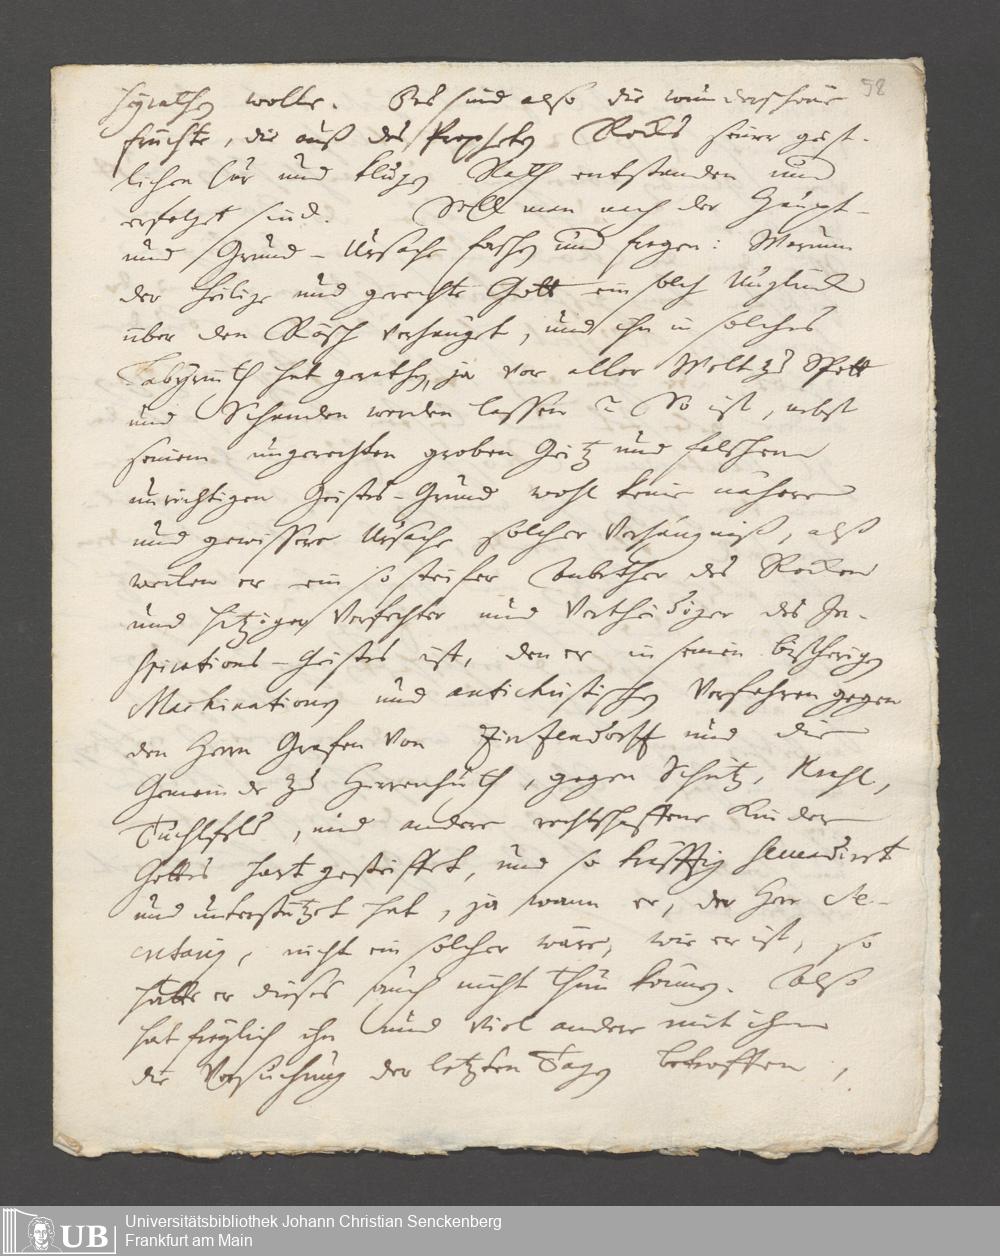 58
heyrathen wolle. Das sind also die wunderschöne
früchte, die auß des Propheten Rocks seiner geist-
lichen Cur und klugen Rath entstanden und
erfolget sind. Soll man nach der Haupt-
und Grund-Ursache forschen und fragen: Warum
der heilige und gerechte Gott ein solch Unglück
über den verhänget, und ihn in solches
Labyrinth hat gerathen, ja vor aller Welt zu Spott
und Schanden werden lassen? So ist, nebst
seinem ungerechten groben Geitz und falschem
unrichtigen Geistes-Grund wohl keine nähere
und gewissere Ursache solcher Verhängniß, alß
weilen er ein so steifer Anbether des Rocken
und hitziger Verfechter und Vertheidiger des In-
spirations-Geistes ist, den er in seinen bißherigen
Machinationen und antichristischen Verfahren gegen
den Herrn Grafen von Zinzendorff und die
Gemeinde zu Herrenhuth, gegen Schütz,
Tuchfeld, und andere rechtschaffene Kinder
Gottes hart gesteiffet, und so kräfftig
und unterstützet hat, ja wann er, der Herr
nicht ein solcher wäre, wie er ist, so
hätte er dieses auch nicht thun können. Also
hat freylich ihn und viel andere mit ihm
die Versuchung der letzten Tagen betroffen,
UB
Universitätsbibliothek Johann Christian Senckenberg
Frankfurt am Main